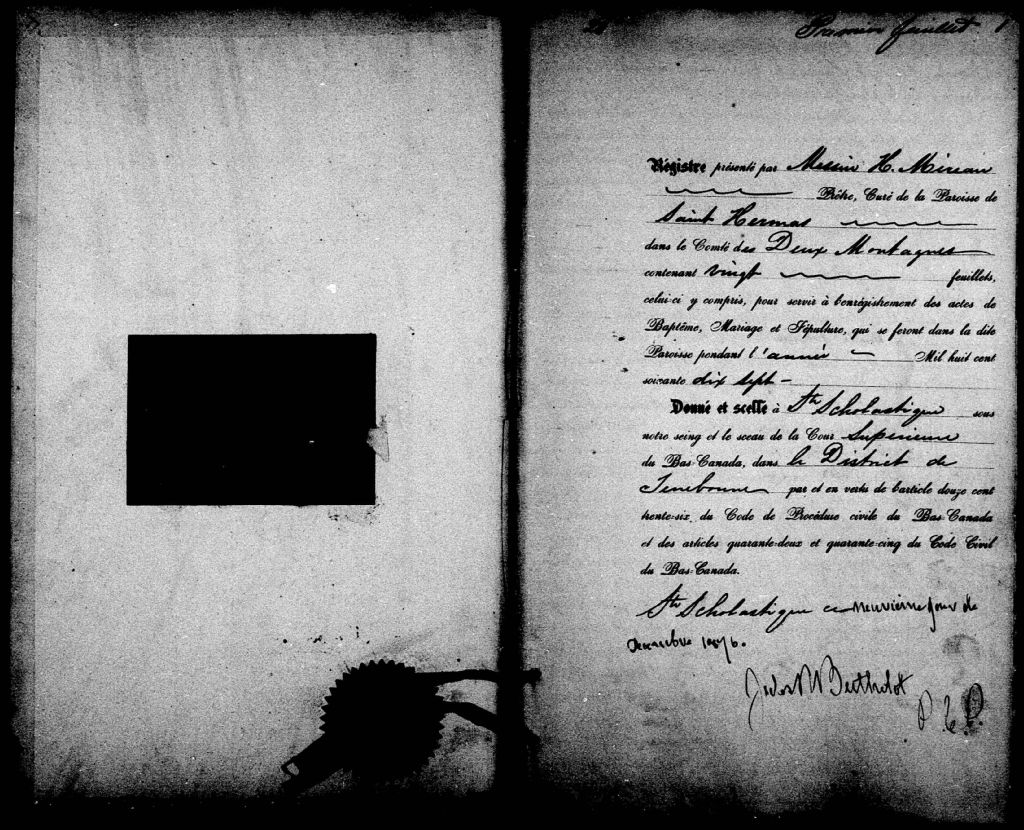 Premier feuillet
Régistre présenté par Messire H. Mireau
Prêtre, Curé de la Paroisse de
Saint Hermas
dans le Comté des Deux Montagnes
contenant vingt feuillets,
celui-ci y compris, pour servir à l'enrégistrement des actes de
Baptême, Mariage et Sépulture, qui se feront dans la dite
Paroisse pendant l'année Mil huit cent
soixante dix sept
Donné et scellé à Ste Scholastique sous
notre seing et le sceau de la Cour Supérieure
du Bas-Canada, dans le District de
Terrebonne par et en vertu de l'article douze cent
trente-six du Code de Procédure civile du Bas-Canada
et des articles quarante-deux et quarante-cinq du Code Civil
du Bas-Canada.
Ste Scholastique ce neuvième jour de
décembre 1876.
Berthelot
P. C. S.